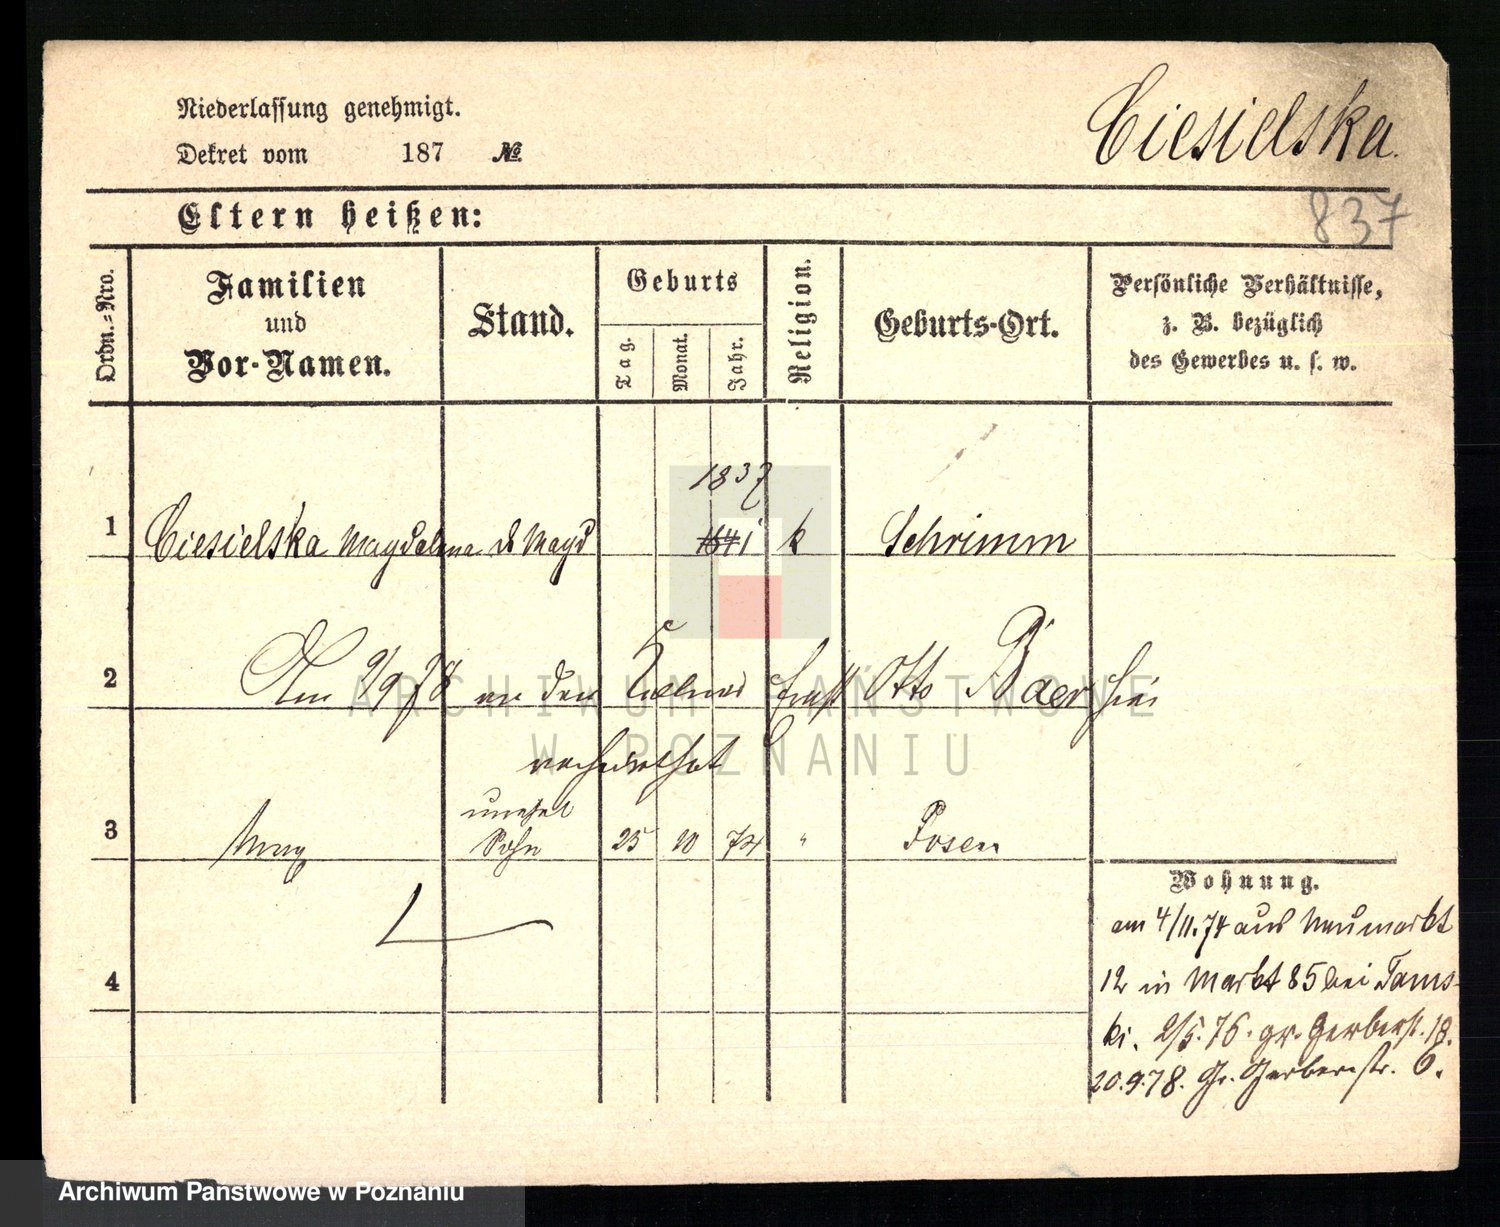 Niederlassung genehmigt.
Dekret vom 187 №
Ciesielska.
Eltern heißen:
837
Ordn.-Nro.
Familien
und
Vor-Namen.
Stand.
Geburts
Tag.
Monat.
Jahr.
Religion.
Geburts-Ort.
Persönliche Verhältnisse,
z. B. bezüglich
des Gewerbes u. s. w.
1837
1 Ciesielska Magdalena d Magd 1841 k Schrimm
2 Am 2/9 78 an den Kellner Ernst Otto Baer hier
verheirathet
unehel
3 Max Sohn 25 10 74 " Posen
Wohnung.
am 4/11. 74 aus Neumarkt
12 in Markt 85 bei Tams-
ki. 2/5. 76. gr. Gerberst. 18.
20.9.78. Gr. Gerberstr. 6.
4
ARCHIWUM PAŃSTWOWE
W POZNANIU
Archiwum Państwowe w Poznaniu